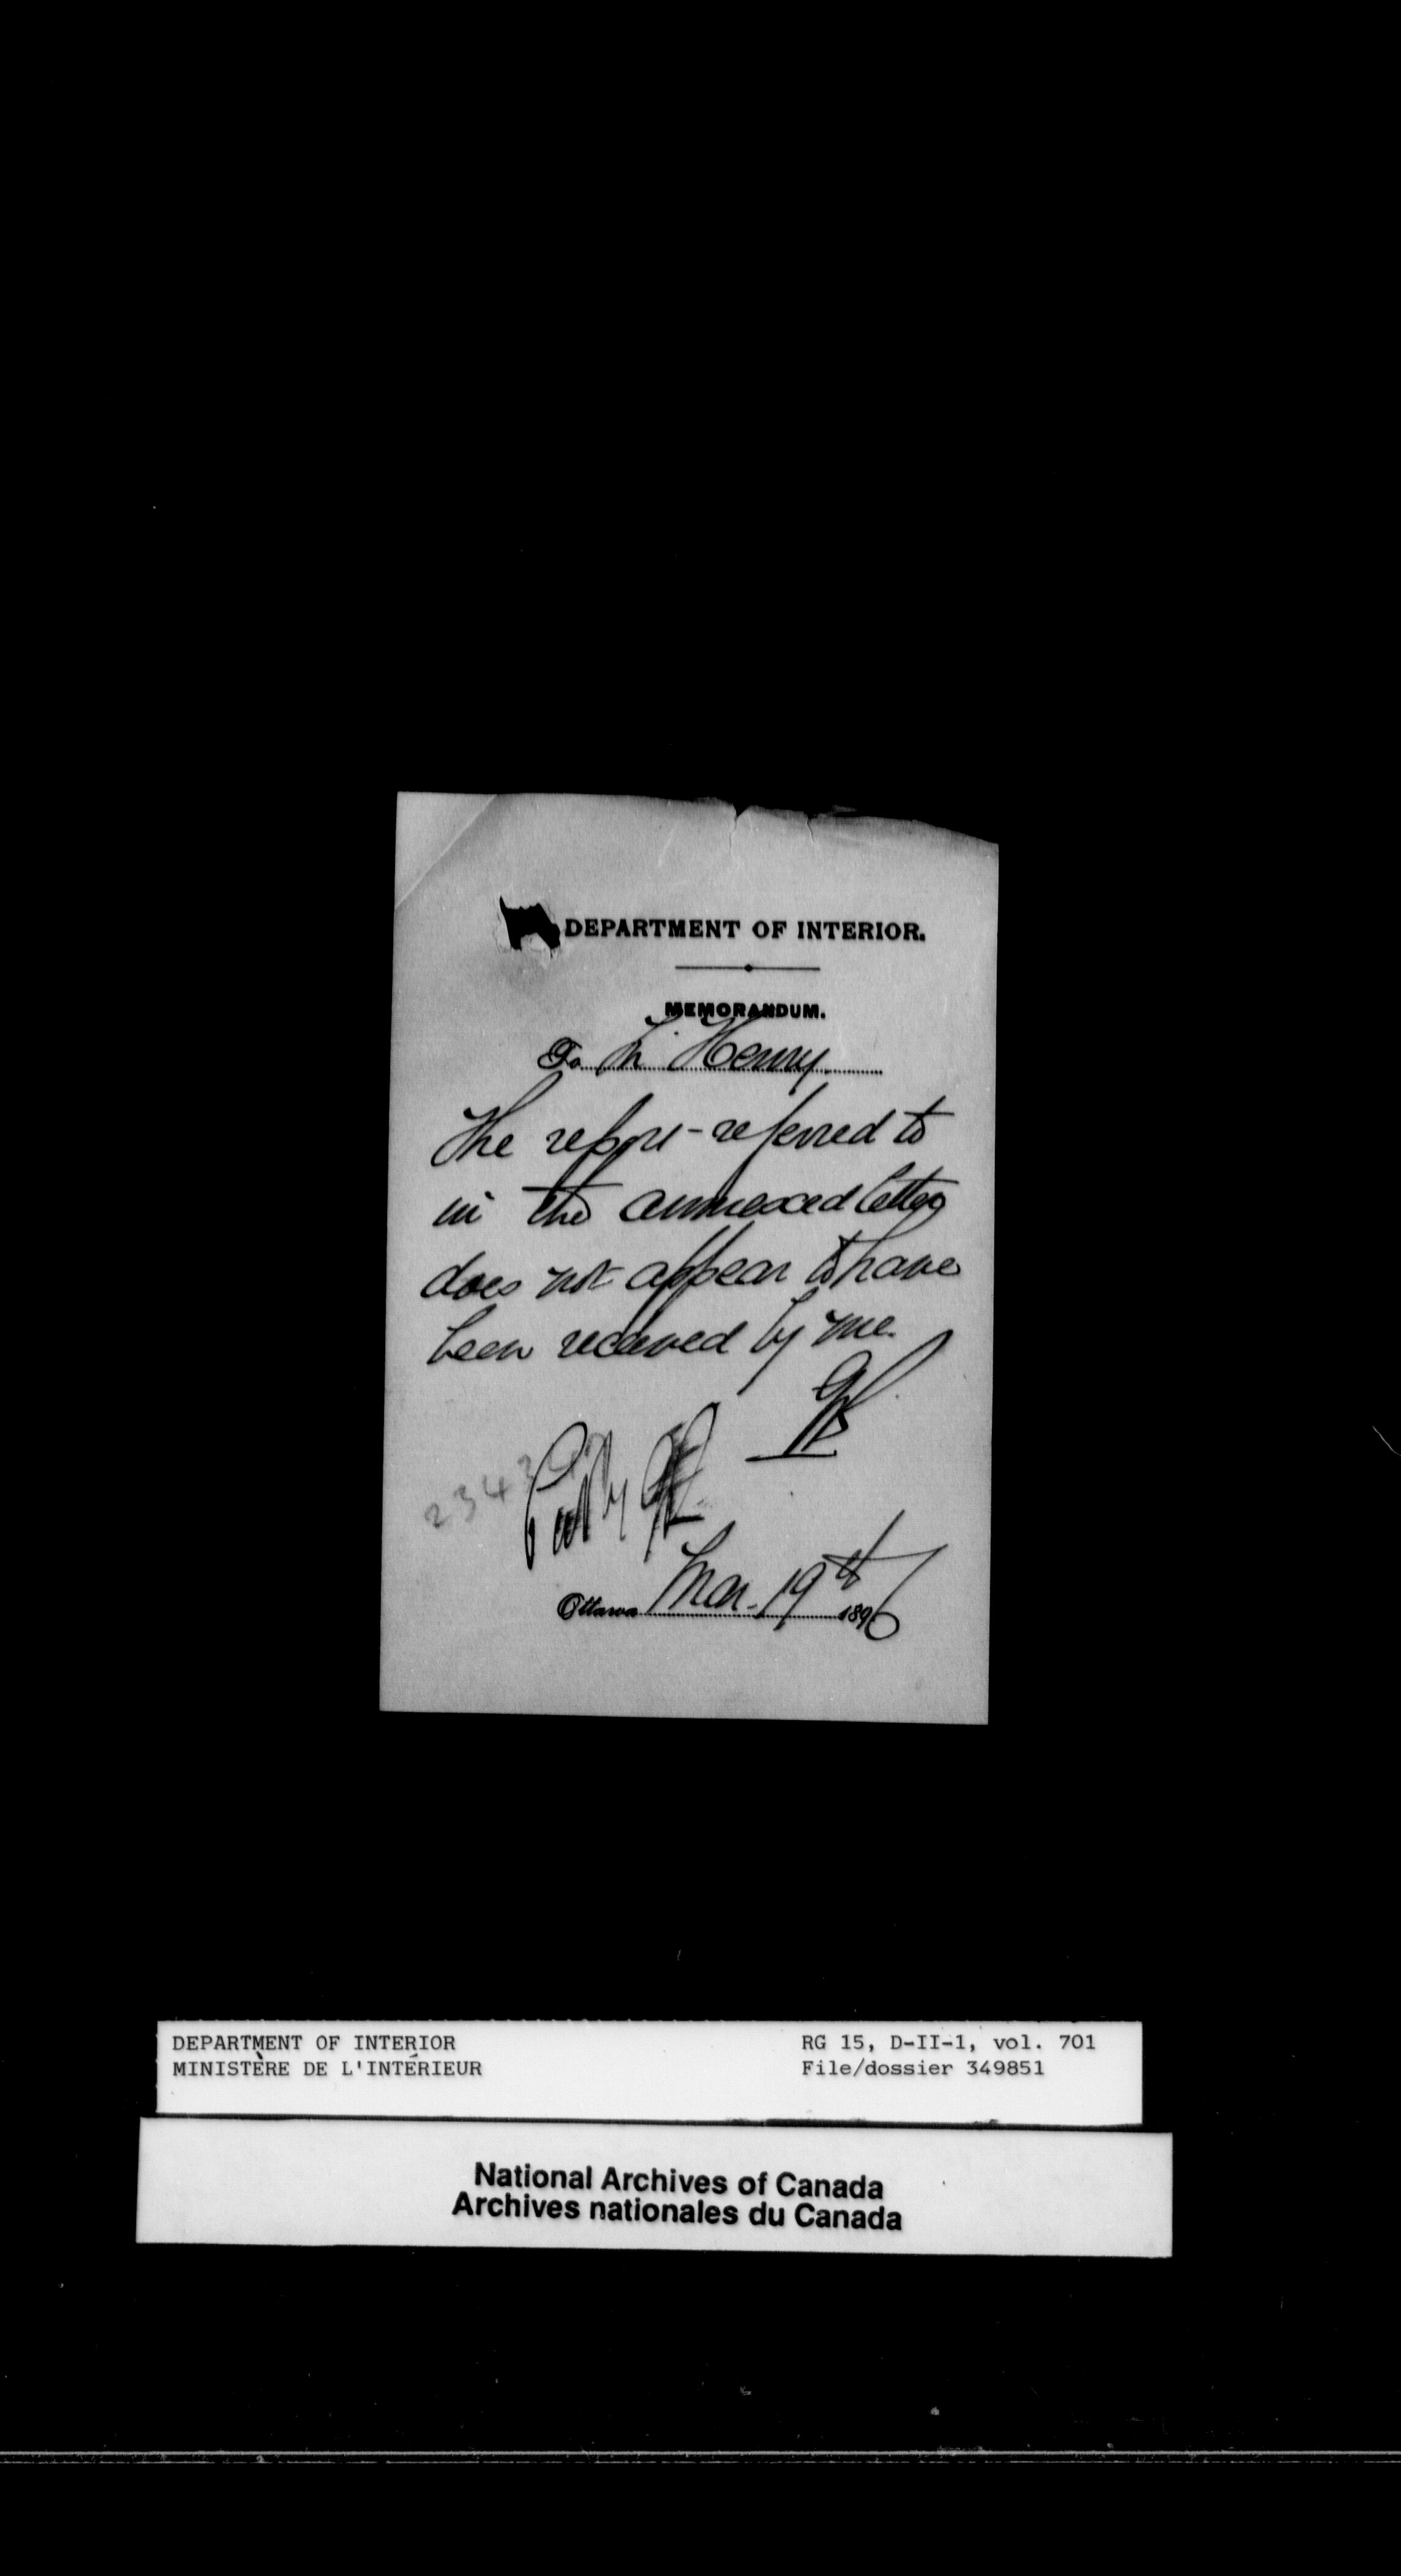 DEPARTMENT OF INTERIOR.
MEMORANDUM.
To Mr Henry.
The report referred to
in the annexed letter
does not appear to have
been received by me.
Ottawa Mar. 19th 1896
DEPARTMENT OF INTERIOR
MINISTÈRE DE L'INTÉRIEUR
RG 15, D-II-1, vol. 701
File/dossier 349851
National Archives of Canada
Archives nationales du Canada